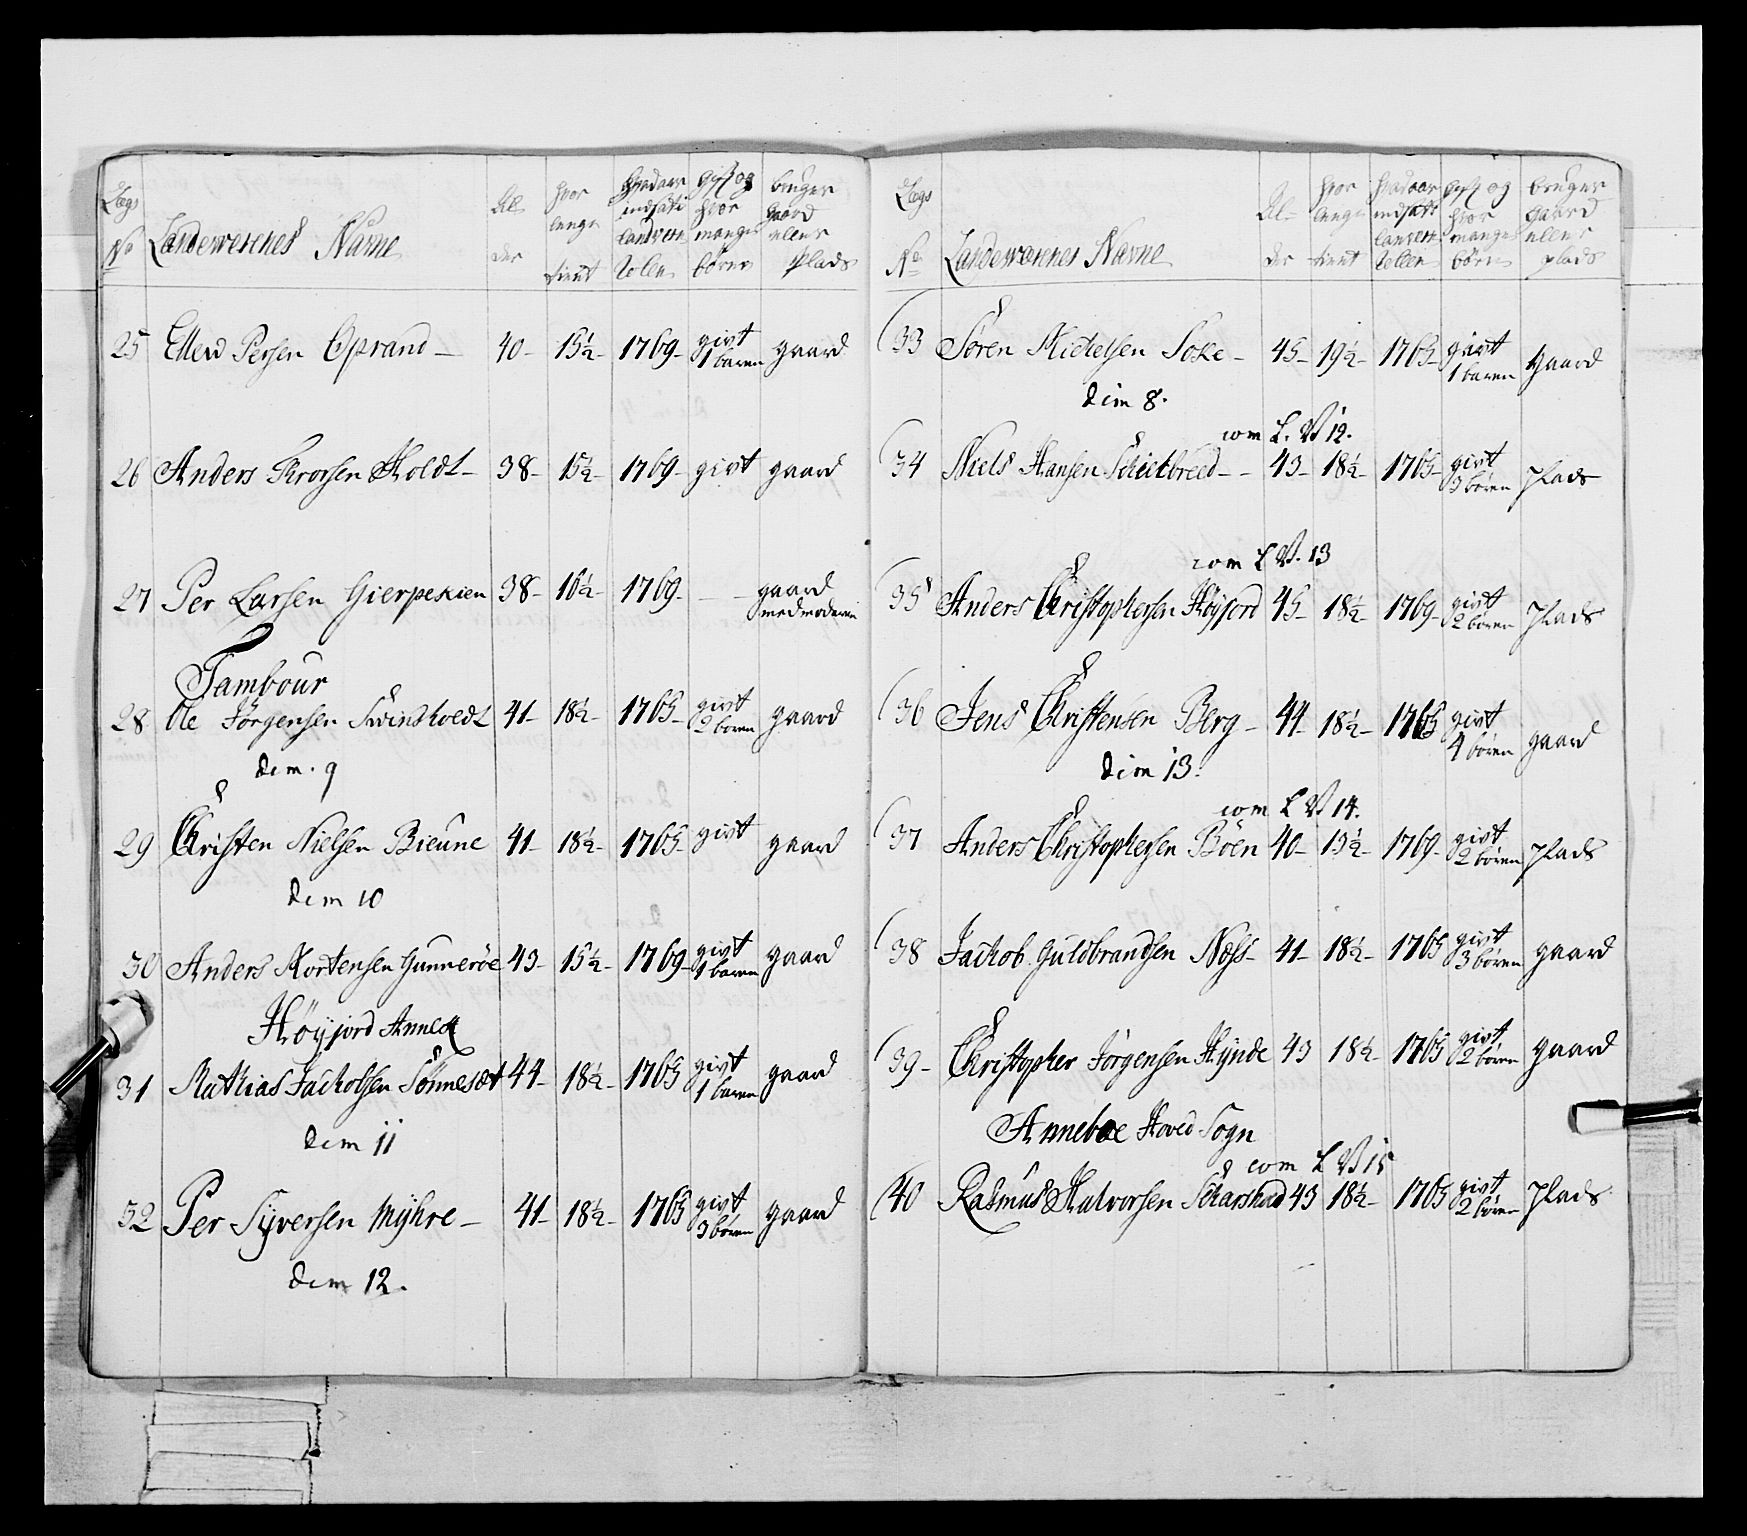 Lægs No | Landewerenes Navne | Al der | hvor lenge tient | hvadaar indsatt i landvern rolen | gift og hvor mange børn | bruger gaard eller plads
25 Ellew Persen Oprand – 40 – 15½ – 1769 – givt 1 baren gaard
26 Anders Thorsen Holdt – 38 – 15½ – 1769 – givt gaard
27 Per Larsen Gierpekien 38 – 16½ – 1769 – gaard med moderen
Tambour
28 Ole Jörgensen Svindshoedt 41 – 18½ – 1765 – givt 2 børen gaard
dim. 9
29 Christen Nielsen Bieune 41 – 18½ – 1765 – givt gaard
dim 10
30 Anders Mortensen Gunneröe 43 – 15½ – 1769 – givt 1 baren gaard
Höyjord Annex
31 Mathias Jackobsen Sönneset 44 – 18½ – 1765 givt 1 baren gaard
dim 11
32 Per Syversen Myhre – 41 – 18½ – 1765 givt 3 børen gaard
dim 12.
Lægs No | Landewærnes Navne | Al der | hvor lenge tient | hvadaar indsatt landvern rollen | gift og hvor mange børn | bruger gaard eller plads
33 Sören Michelsen Soke – 45 – 19½ – 1765 – givt 1 baren gaard
dim 8.
com L. V 12.
34 Niels Hansen Schietbred – 43 – 18½ – 1765 – givt 3 børen plads
com L V. 13
35 Anders Christophersen Höyjord 45 – 18½ – 1769 – givt 2 børen plads
36 Jens Christensen Berg – 44 – 18½ – 1765 givt 4 børen gaard
dim 13.
com L V 14.
37 Anders Christophersen Böen 40 – 15½ – 1769 – givt 2 børen plads
38 Jackob Guldbrandsen Næss – 41 – 18½ – 1765 givt 3 børen gaard
39 – Christopher Jörgensen Hynde 43 18½ – 1765 givt 2 børen gaard
Anneboe Hoved Sogn
com L V 15
40 Rasmus Halvorsen Scharshad 43 18½ – 1765 givt 2 børen plads